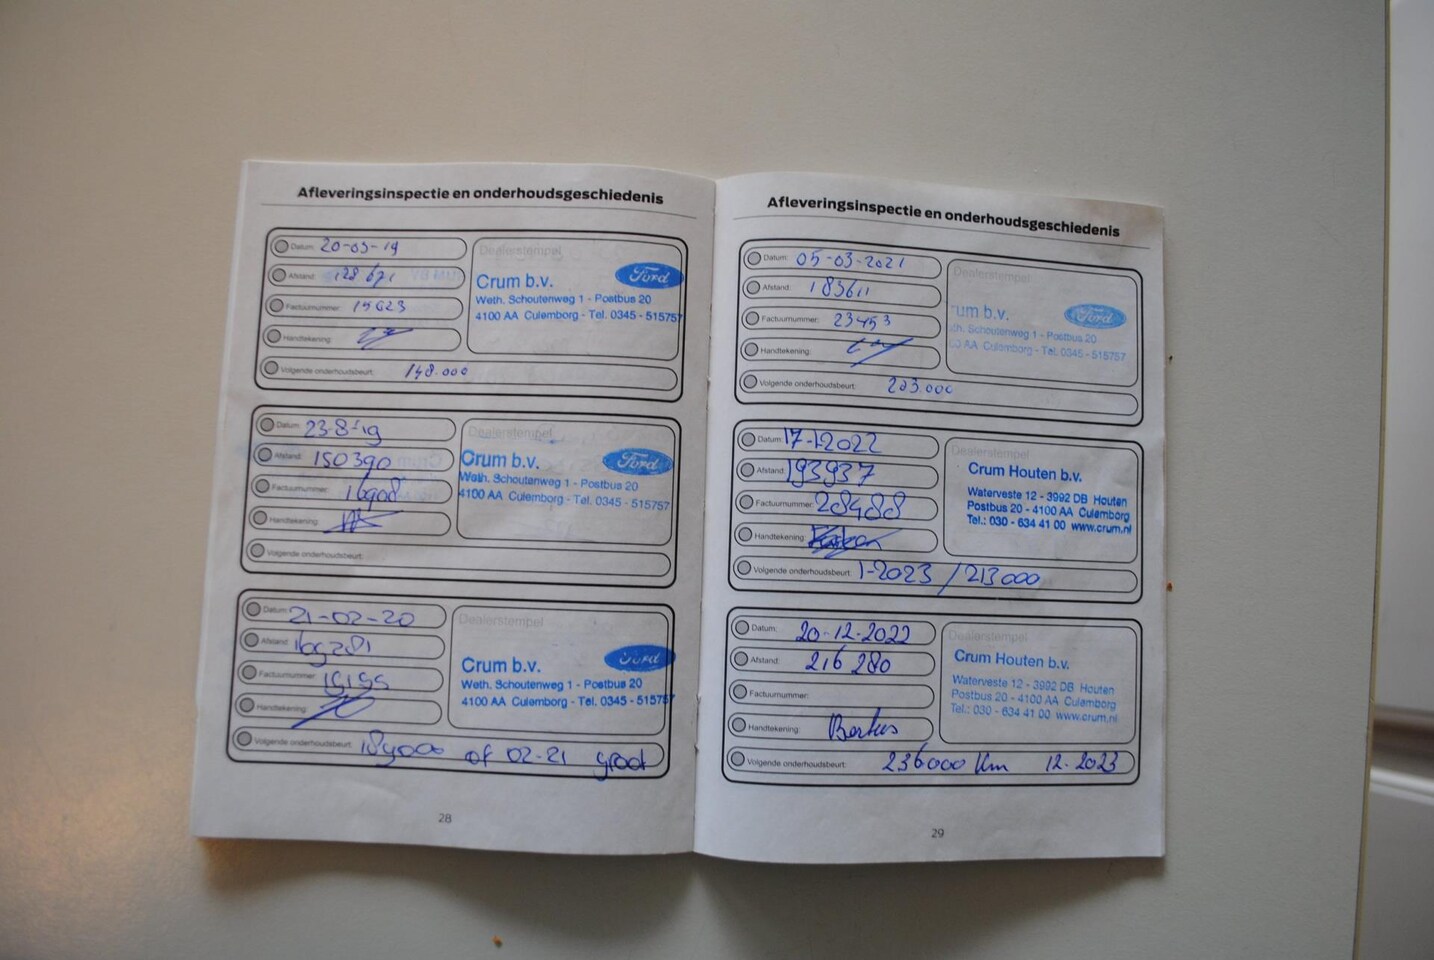 Afleveringsinspectie en onderhoudsgeschiedenis
Datum: 20-03-19
Afstand: 128671
Factuurnummer: 15623
Handtekening:
Volgende onderhoudsbeurt: 148.000
Dealerstempel
Ford
Crum b.v.
Weth. Schoutenweg 1 - Postbus 20
4100 AA Culemborg - Tel. 0345 - 515757
Datum: 23-8-19
Afstand: 150390
Factuurnummer: 16908
Handtekening:
Volgende onderhoudsbeurt:
Dealerstempel
Ford
Crum b.v.
Weth. Schoutenweg 1 - Postbus 20
4100 AA Culemborg - Tel. 0345 - 515757
Datum: 21-02-20
Afstand: 169281
Factuurnummer:
Handtekening:
Volgende onderhoudsbeurt: 189000 of 02-21 groot
Dealerstempel
Ford
Crum b.v.
Weth. Schoutenweg 1 - Postbus 20
4100 AA Culemborg - Tel. 0345 - 515757
28
Afleveringsinspectie en onderhoudsgeschiedenis
Datum: 05-03-2021
Afstand: 183611
Factuurnummer: 23453
Handtekening:
Volgende onderhoudsbeurt: 203.000
Dealerstempel
Ford
rum b.v.
th. Schoutenweg 1 - Postbus 20
00 AA Culemborg - Tel. 0345 - 515757
Datum: 17-1-2022
Afstand: 193937
Factuurnummer: 28488
Handtekening:
Volgende onderhoudsbeurt: 1-2023 / 213000
Dealerstempel
Crum Houten b.v.
Waterveste 12 - 3992 DB Houten
Postbus 20 - 4100 AA Culemborg
Tel.: 030 - 634 41 00 www.crum.nl
Datum: 20-12-2022
Afstand: 216280
Factuurnummer:
Handtekening: Bertus
Volgende onderhoudsbeurt: 236000 Km 12-2023
Dealerstempel
Crum Houten b.v.
Waterveste 12 - 3992 DB Houten
Postbus 20 - 4100 AA Culemborg
Tel.: 030 - 634 41 00 www.crum.nl
29